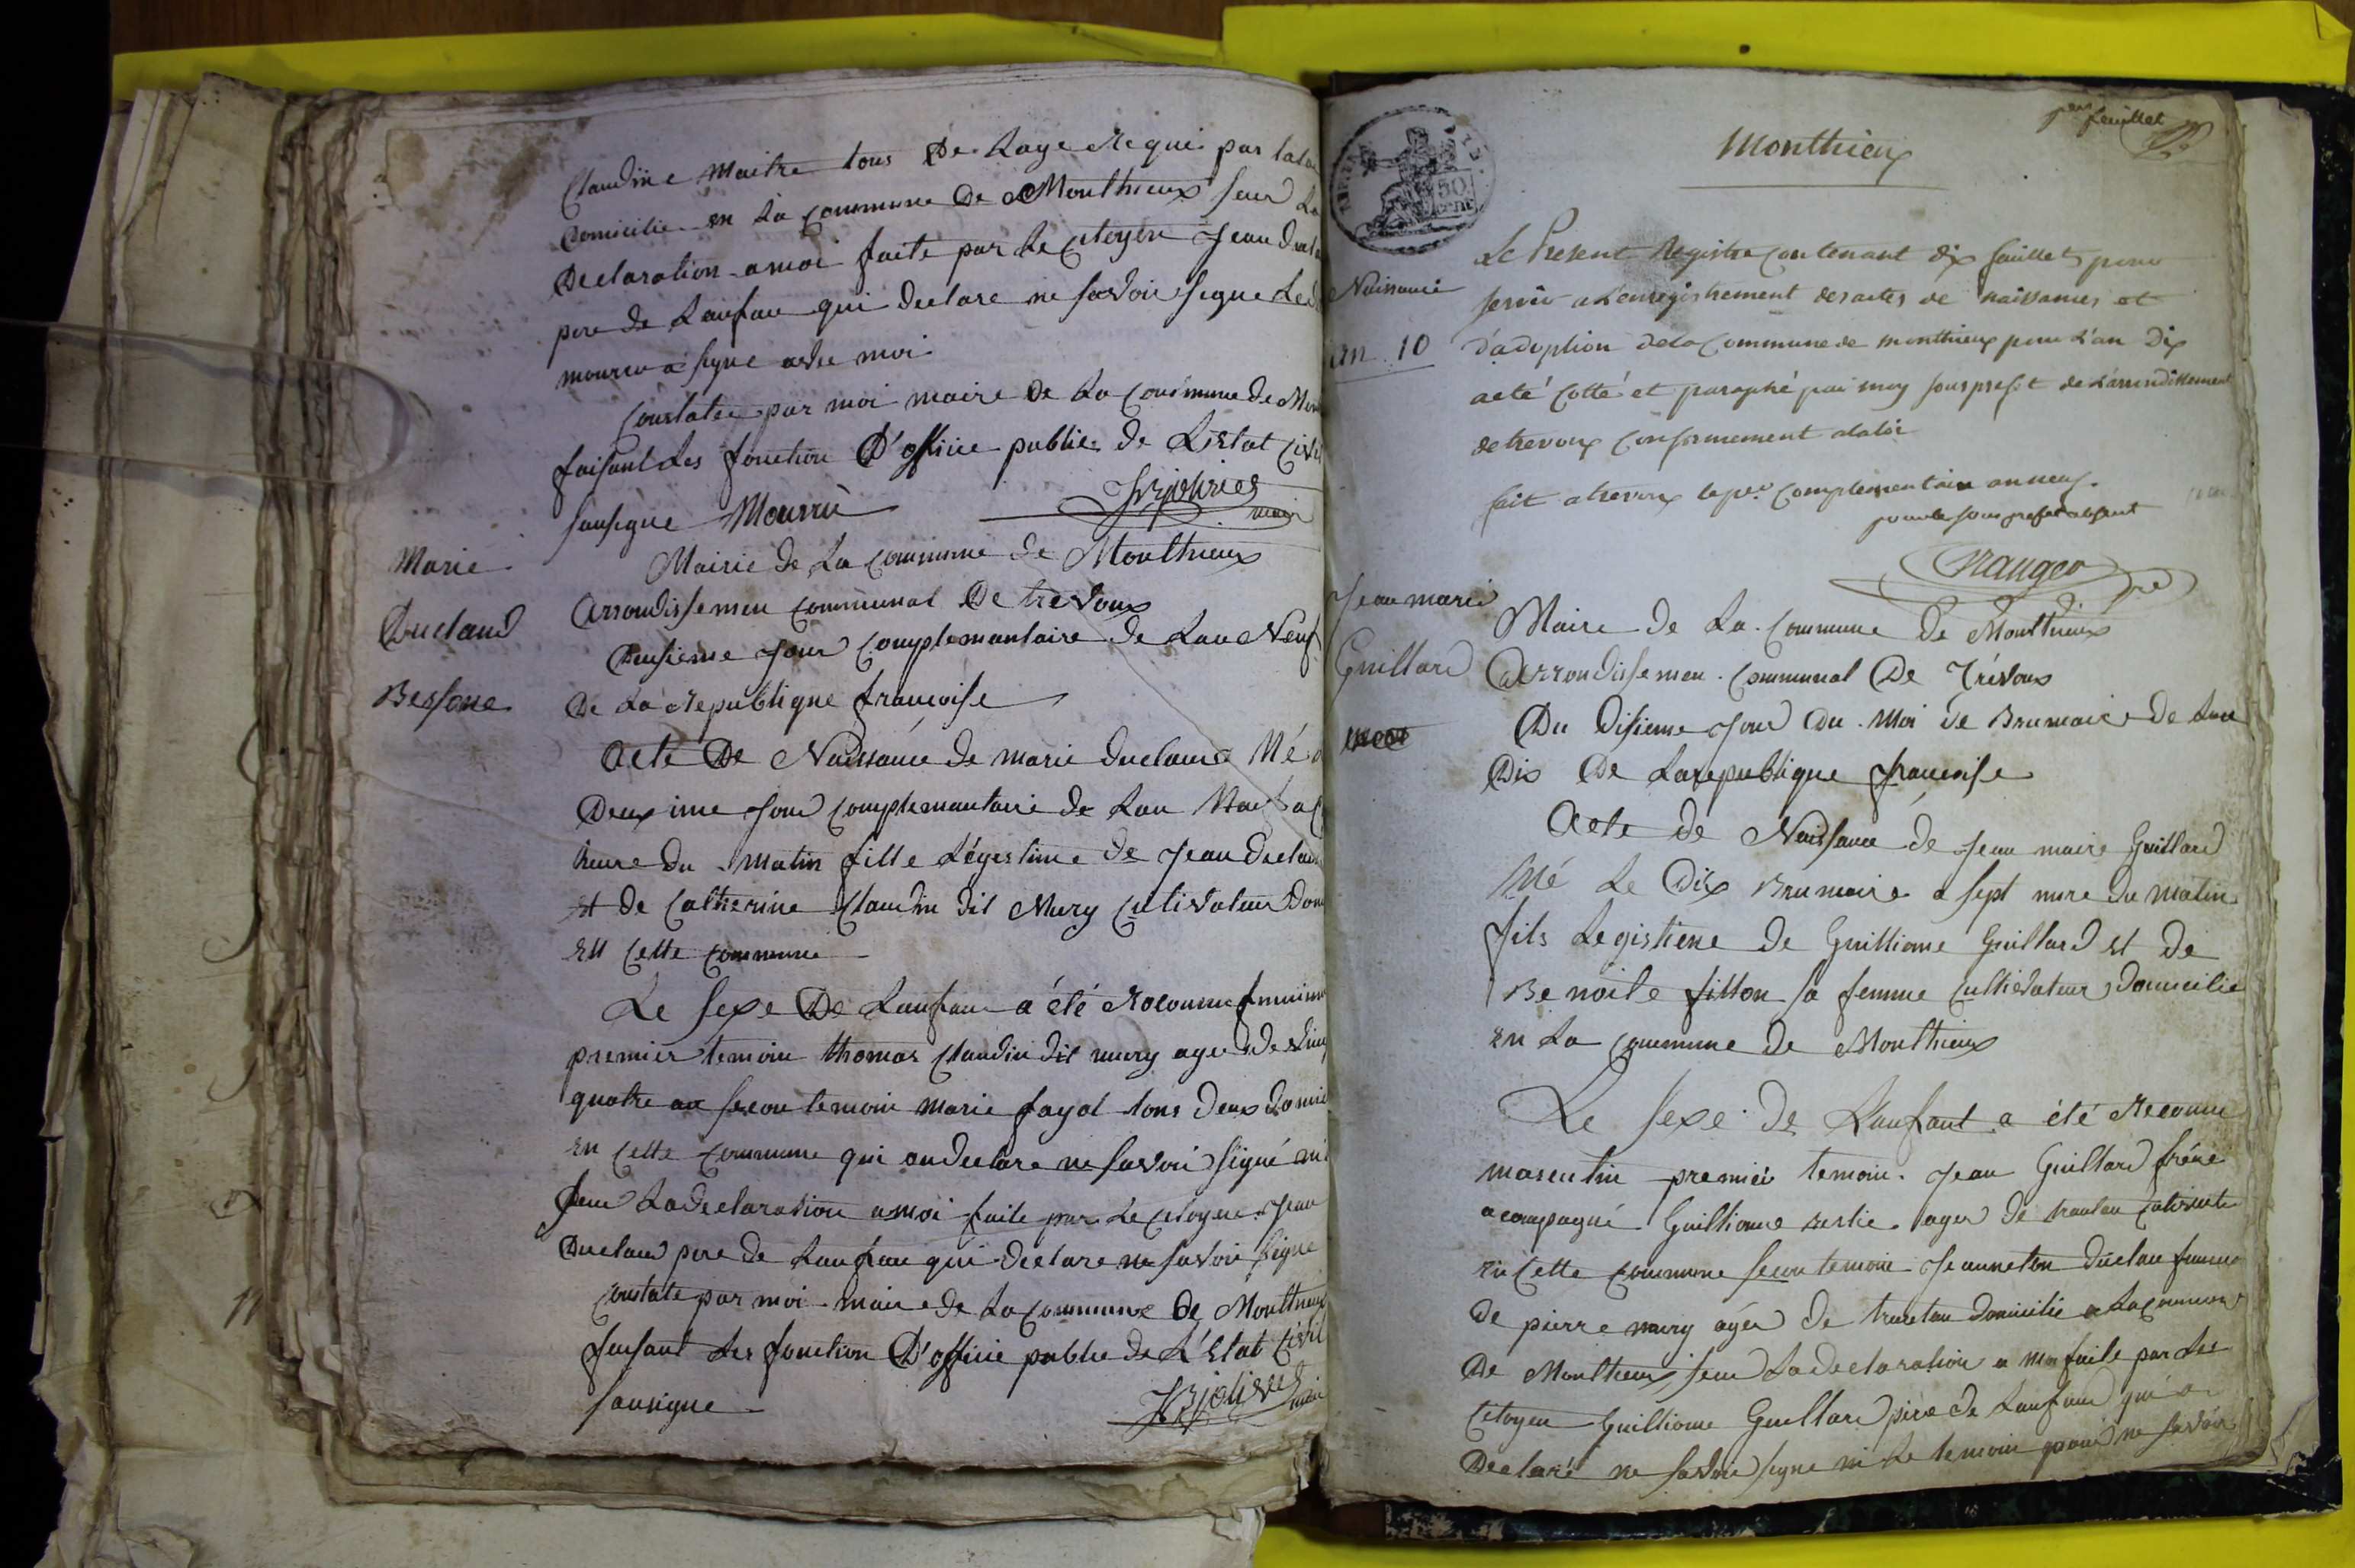 Claudine Maitre tous De Lage Requi par
Domicilie en La Commune De Monthieux sur La
Declaration a moi faite par Le Citoyen Jean
pere de Lanfan qui declare ne savoir signe Led
mourru a signe avec moi
Constatée par moi maire De La Commune De Mon
faisant Les fonction D'officie public de Lestat Civil
sousigne Mourru
maire
Marie
Duclaud
Bessone
Mairie de La Commune de Monthieux
Arrondissemen Communal De trevoux
Deusieme Jour Complemantaire de Lan Neuf
De La Republique francoise
Acte De Naissance de marie duclaud Né
Deuxime Jour Complemantaire de Lan Neuf a
heure Du matin fille Légistime de Jean Duclau
et de Catherine Claudin dit Mury Cultivateur Dom
en Cette Commune
Le sexe De Lanfan a été Reconnu feminin
premier temoin thomas Claudin dit mury ager de vin
quatre an secon temoin marie fayol tous deux domi
en Cette Commune qui on declare ne savoir signé ni
sur La declaration a moi faite par Le Citoyen Jean
Duclaud pere de Lanfan qui declare ne savoir signe
Constate par moi maire de La Commune De Monthieux
faisant Les fonction D'officie public de L'Etat Civil
sousigne
maire
1er feuillet
Monthieux
Naissance
an 10
Le Present Registre Contenant dix feuillets pour
servir a Lenregistrement des actes de naissances et
d'adoption de la Commune de monthieux pour L'an dix
a eté Cotté et paraphé par moy sous prefet de L'arrondissement
de trevoux Conformement a la loi
fait a trevoux le per Complementaire an neuf
pour le sous prefet absent
Jean marie
Guillard
Maire de La Commune De Monthieux
Arrondissemen Communal De Trévoux
Du Disieme Jour Du Moi de Brumaire de Lan
Dix De La republique francoise
Acte de Naissance de Jean maire Guillard
Né Le Dix Brumaire a sept eure du matin
fils Legistime de Guilliome Guillard et de
Benoite fillon sa femme Cultivateur Domicilie
en La Commune de Monthieux
Le sexe de Lanfant a été Reconnu
masculin premier temoin Jean Guillard frere
acompagné Guilliome ager de
en Cette Commune secon temoin Jeanneton duclau femme
de pierre mury ager de domicilie a La Commune
De Monthieux sur La declaration a moi faite par Le
Citoyen Guilliome Guillard pere de Lanfan qui a
Declaré ne savoir signe ni Le temoin pour ne savoir